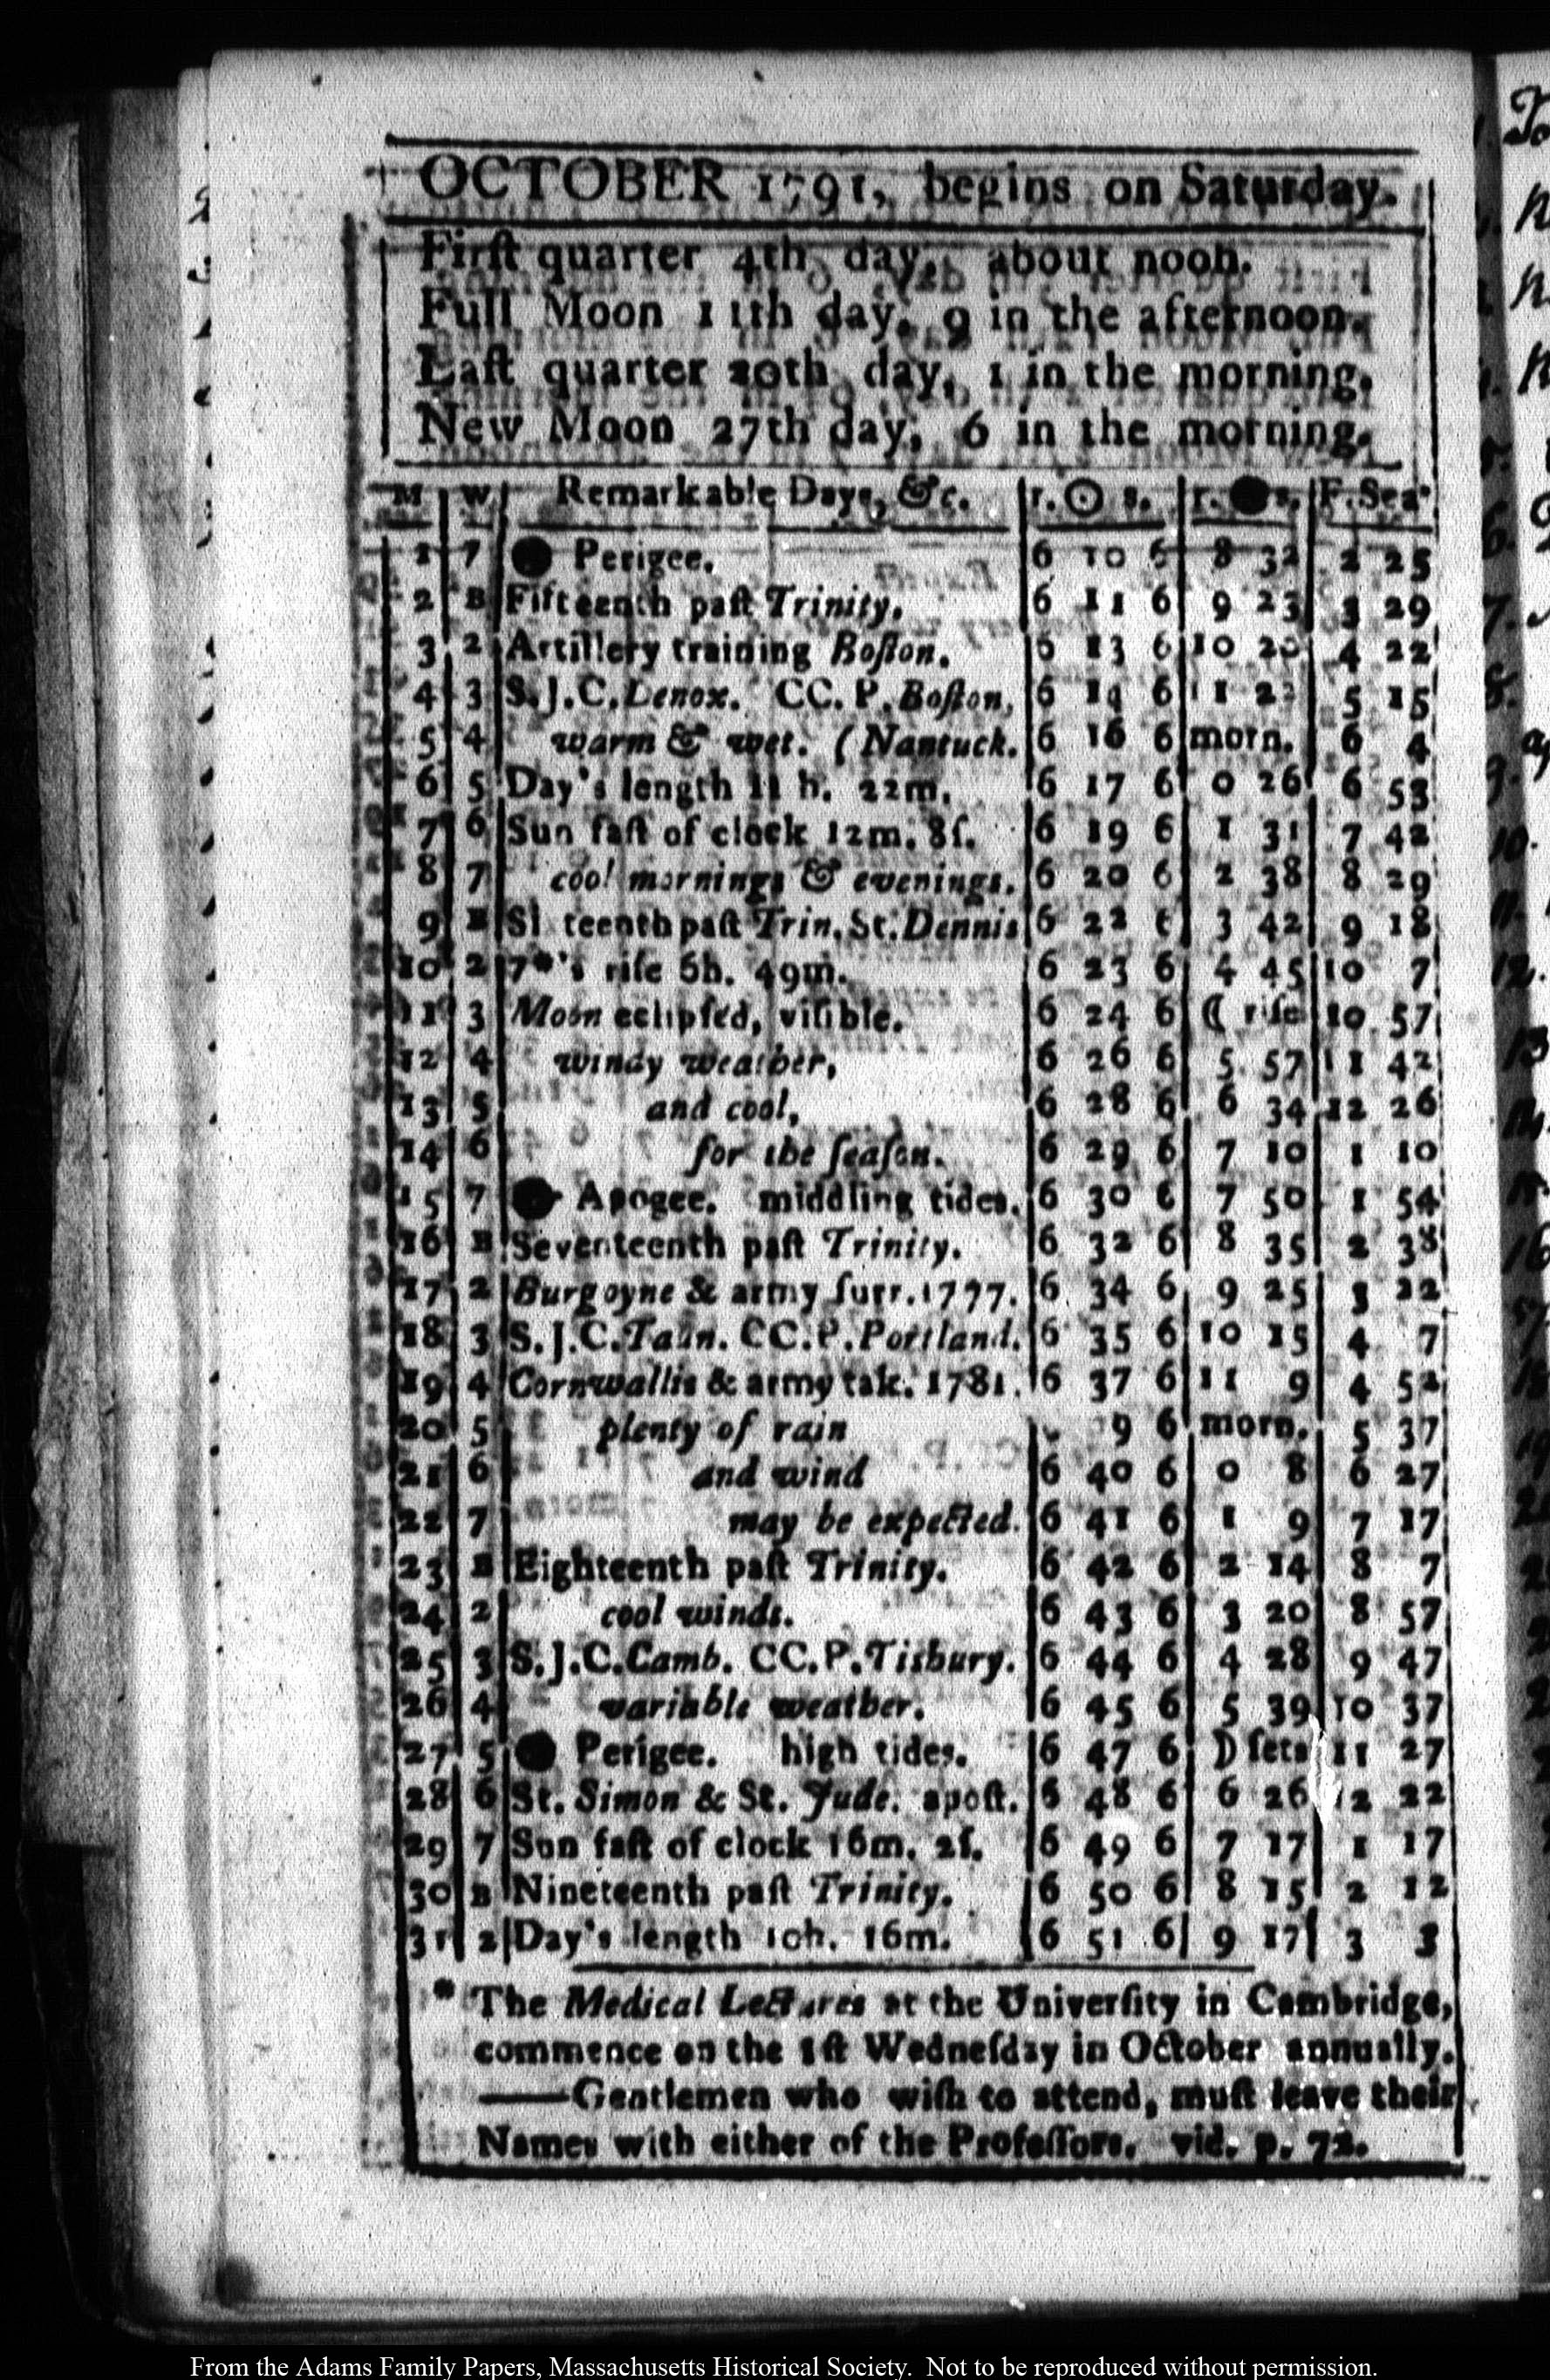 OCTOBER 1791, begins on Saturday.
Firſt quarter 4th day, about noon.
Full Moon 11th day, 9 in the afternoon.
Laſt quarter 20th day, 1 in the morning.
New Moon 27th day, 6 in the morning.
M W Remarkable Days, &c. r. ☉ s. r. ● s. F. Sea
1 7 ● Perigee. 6 10 6 8 32 2 25
2 B Fifteenth paſt Trinity. 6 11 6 9 23 3 29
3 2 Artillery training Boſton. 6 13 6 10 20 4 22
4 3 S.J.C. Lenox. CC. P. Boſton, 6 14 6 11 22 5 15
5 4 warm & wet. (Nantuck. 6 16 6 morn. 6 4
6 5 Day's length 11 h. 22m. 6 17 6 0 26 6 53
7 6 Sun faſt of clock 12m. 8ſ. 6 19 6 1 31 7 42
8 7 cool mornings & evenings. 6 20 6 2 38 8 29
9 B Si teenth paſt Trin. St. Dennis 6 22 6 3 42 9 18
10 2 7*'s riſe 6h. 49m. 6 23 6 4 45 10 7
11 3 Moon eclipſed, viſible. 6 24 6 ☾ riſe 10 57
12 4 windy weather, 6 26 6 5 57 11 42
13 5 and cool, 6 28 6 6 34 12 26
14 6 for the ſeaſon. 6 29 6 7 10 1 10
15 7 ● Apogee. middling tides. 6 30 6 7 50 1 54
16 B Seventeenth paſt Trinity. 6 32 6 8 35 2 38
17 2 Burgoyne & army ſurr. 1777. 6 34 6 9 25 3 22
18 3 S.J.C. Taun. CC.P. Portland. 6 35 6 10 15 4 7
19 4 Cornwallis & army tak. 1781. 6 37 6 11 9 4 52
20 5 plenty of rain 9 6 morn. 5 37
21 6 and wind 6 40 6 0 8 6 27
22 7 may be expected. 6 41 6 1 9 7 17
23 B Eighteenth paſt Trinity. 6 42 6 2 14 8 7
24 2 cool winds. 6 43 6 3 20 8 57
25 3 S.J.C. Camb. CC.P. Tisbury. 6 44 6 4 28 9 47
26 4 variable weather. 6 45 6 5 39 10 37
27 5 ● Perigee. high tides. 6 47 6 ☽ ſets 11 27
28 6 St. Simon & St. Jude. apoſt. 6 48 6 6 26 12 22
29 7 Sun faſt of clock 16m. 2ſ. 6 49 6 7 17 1 17
30 B Nineteenth paſt Trinity. 6 50 6 8 15 2 12
31 2 Day's length 10h. 16m. 6 51 6 9 17 3 3
* The Medical Lectures at the Univerſity in Cambridge,
commence on the 1ſt Wedneſday in October annually.
——Gentlemen who wiſh to attend, muſt leave their
Names with either of the Profeſſors. vid. p. 72.
From the Adams Family Papers, Massachusetts Historical Society. Not to be reproduced without permission.